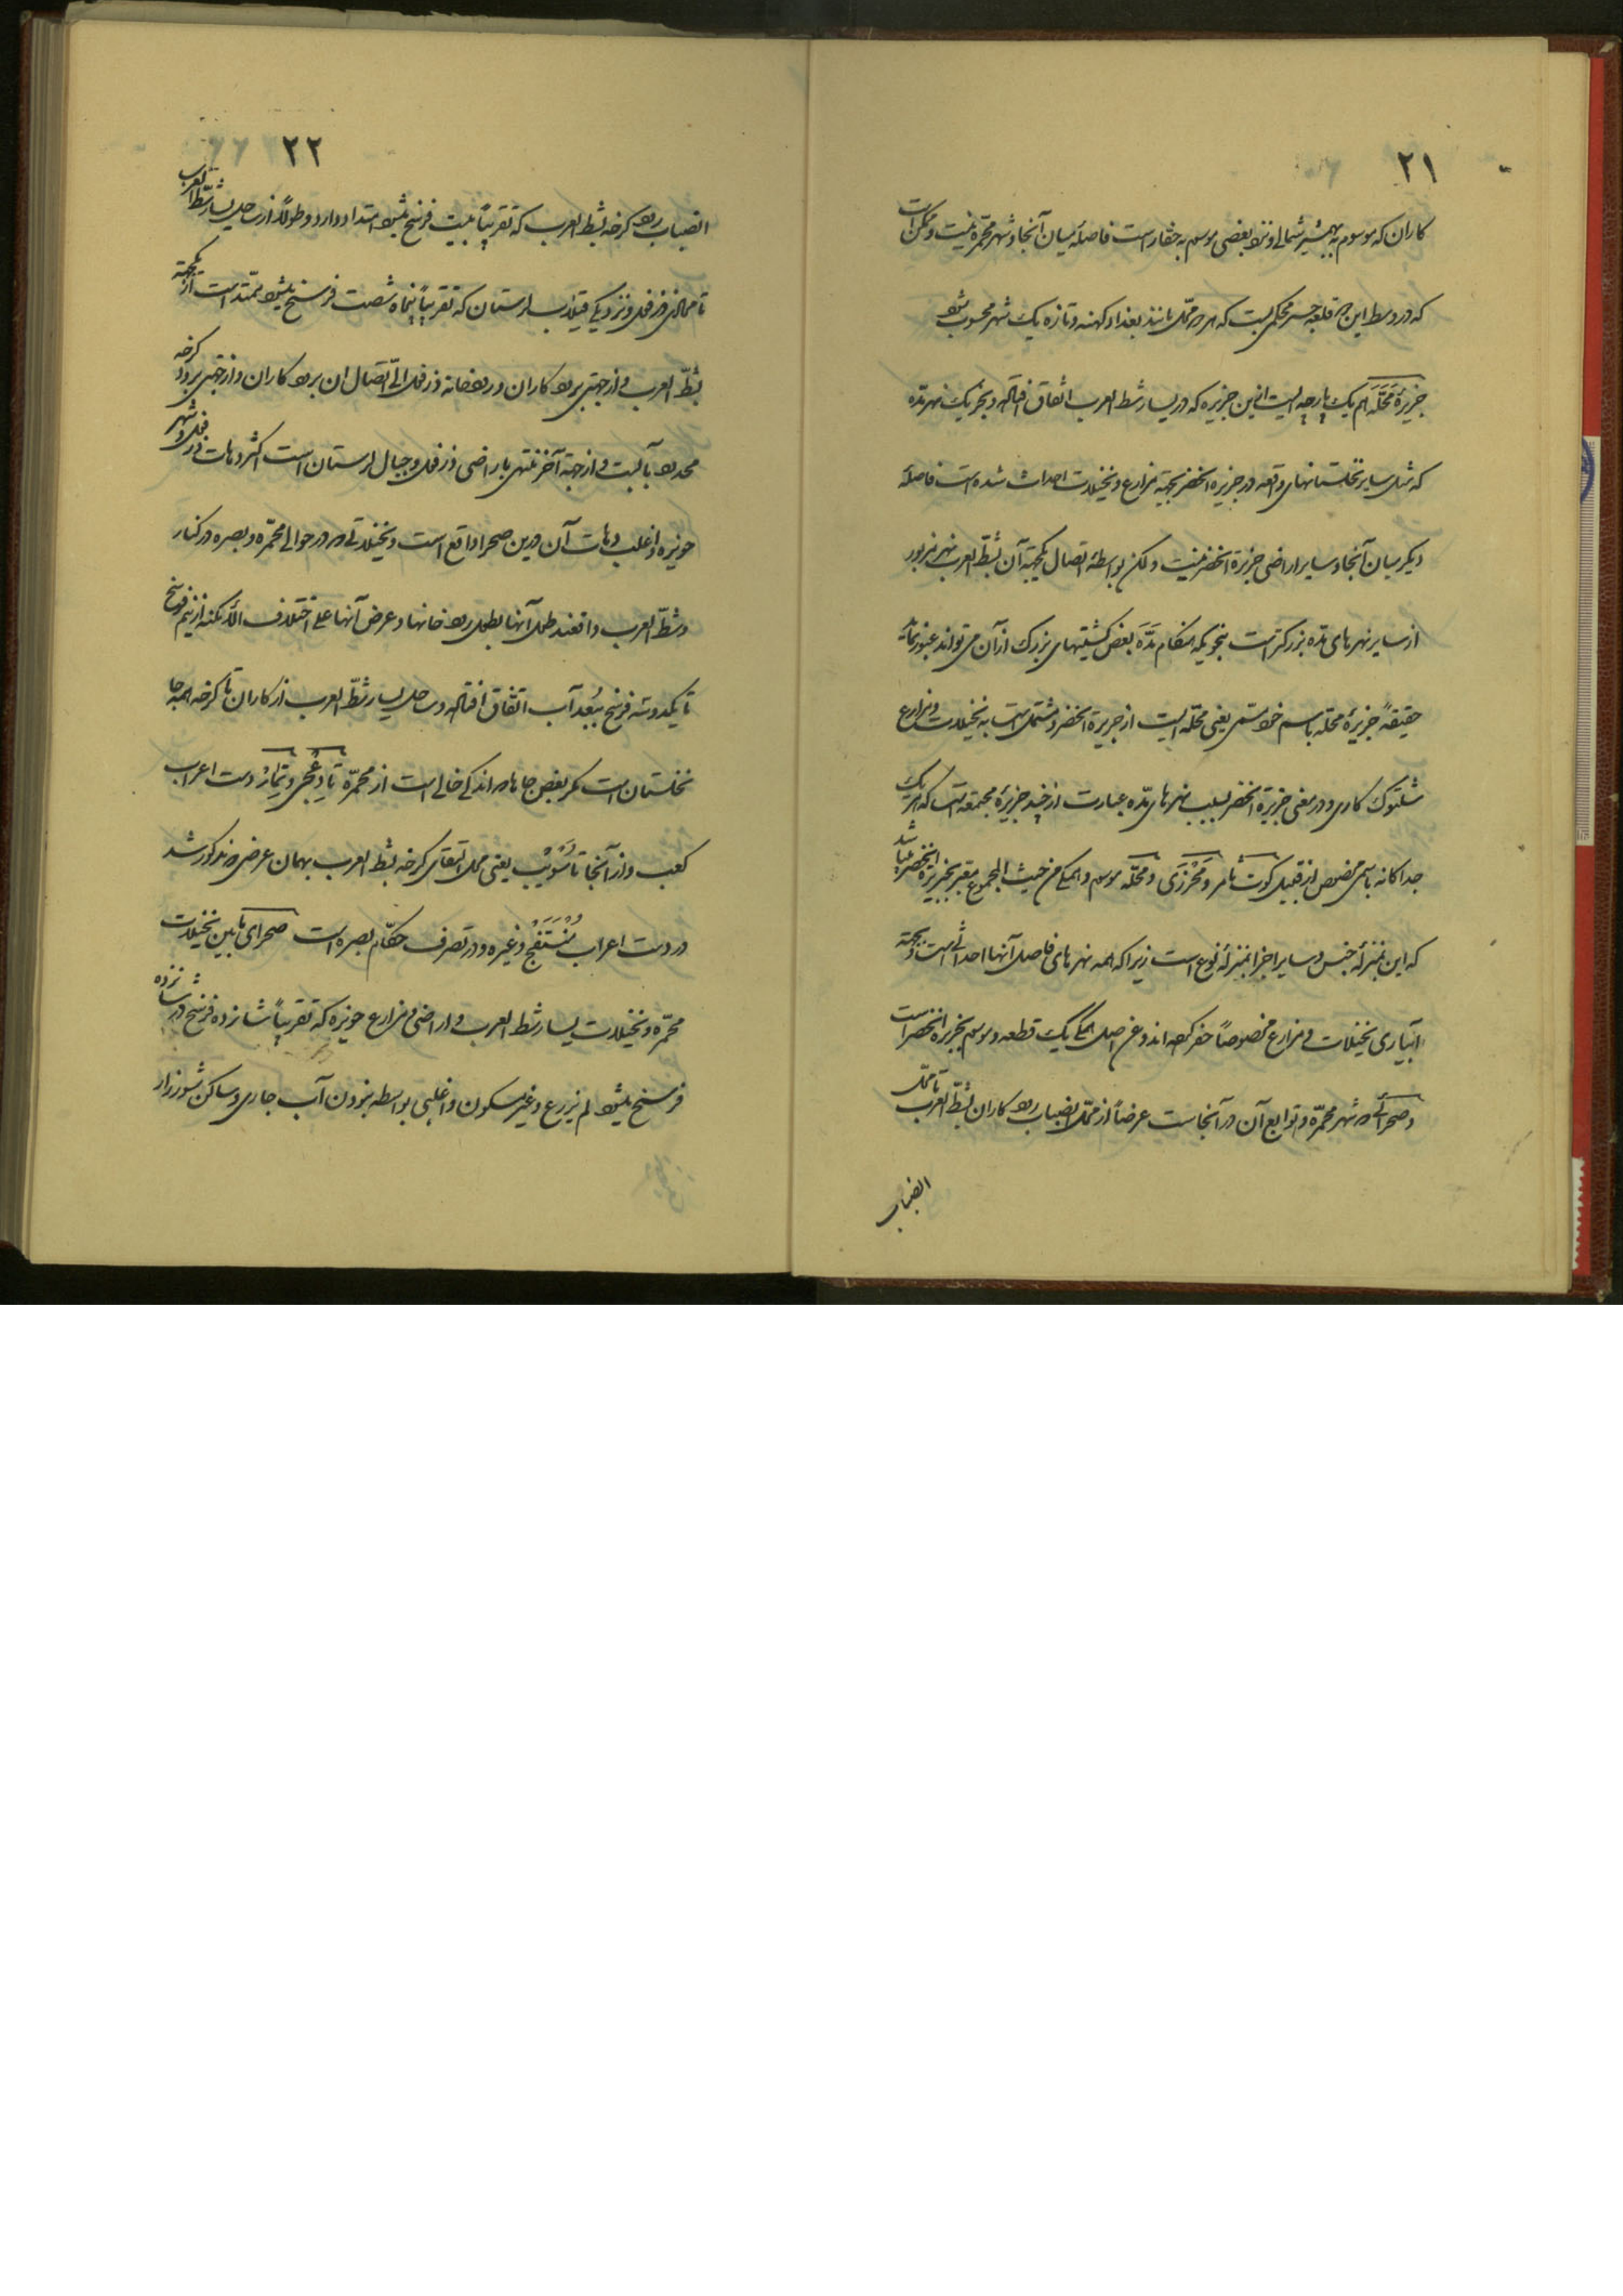 ۲۱
کاران که موسوم به بهمشیر شمالی و نزد بعضی موسوم به حفار است فاصلهٔ میان آنجا و شهر محمّره نیست و ممکن است
که در وسط این قلعه جسر محکمی بست که هر دو محل مانند بغداد کهنه و تازه یک شهر محسوب شود
جزیرهٔ مَحَلَّه هم یک پارچه ایست ازین جزیره که در یسار شط العرب اتفاق افتاده و بجز یک نهر مدّه
که مثل سایر نخلستانهای واقعه در جزیرة الخضر بجهة مزارع و نخیلات احداث شده است فاصلهٔ
دیگر میان آنجا و سایر اراضی جزیرة الخضر نیست ولکن بواسطهٔ اتصال یکجهة آن بشطّ العرب نهر مزبور
از سایر نهرهای مدّه بزرکتر است بنحویکه هنکام مَدَّه بعض کشتیهای بزرک از آن می تواند عبور نماید
حقیقةً جزیرهٔ محله باسم خود یعنی محله ایست از جزیرة الخضر و مشتمل است به نخیلات و مزارع
شلتوک کاری و در معنی جزیرة الخضر بسبب نهرهای مدّه عبارت از چند جزیرهٔ مجتمعه است که هر یک
جداکانه باسمی مخصوص از قبیل کوت شامر و مَحْرَزَی و محلّه موسوم و همکی من حیث المجموع معتبر بجزیرة الخضر میباشد
که این بمنزلهٔ جنس و سایر اجزا بمنزلهٔ نوع است زیرا که همه نهرهای فاصل آنها احداثی است و بجهة
آبیاری نخیلات و مزارع مخصوصاً حفر کرده اند و فی اصل همکی یک قطعه و موسوم بجزیرة الخضر است
و صحرائی که شهر محمّره و توابع آن در آنجاست عرضاً از محلّ انصباب رود کاران بشطّ العرب تا محلّ
انصباب
۲۲
انصباب رود کرخه بشط العرب که تقریباً بیست فرسخ میشود امتداد دارد و طولاً از ساحل یسار شطّ العرب
تا محاذی دزفول و نزدیکی قیلاب لرستان که تقریباً پنجاه شصت فرسخ میشود ممتد است از یکجهة
بشطّ العرب و از جهتی برود کاران و رودخانهٔ دزفول الی اتّصال ان برود کاران و از جهتی برود کرخه
محدود بآ لبت و از جهة آخر منتهی باراضی دزفول و جبال لرستان است اکثر دهات دزفول و شهر
حویزه و اغلب دهات آن درین صحرا واقع است و نخیلاتی که در حوالی محمّره و بصره در کنار
و شطّ العرب واقعند طول آنها بطول رودخانها و عرض آنها علی اختلاف الأمکنه از نیم فرسخ
تا یکدو سه فرسخ ببُعد آب اتفاق افتاده و ساحل یسار شطّ العرب از کاران تا کرخه همه جا
نخلستان است مکر بعض جاها که اندکی خالی است از محمّره تا دِعَیجی و تِمار در دست اعراب
کعب و از آنجا تا سُوَیْب یعنی محل التقای کرخه بشط العرب بهمان عرض مذکور شد
در دست اعراب مُنْتَفِج و غیره و در تصرف حکّام بصره است صحرای مابین نخیلات
محمّره و نخیلات یسار شط العرب و اراضی و مزارع حویزه که تقریباً شانزده فرسخ در شانزده
فرسخ میشود لم یزرع و غیر مسکون و اغلبی بواسطه نبودن آب جاری و ساکن شوره زار